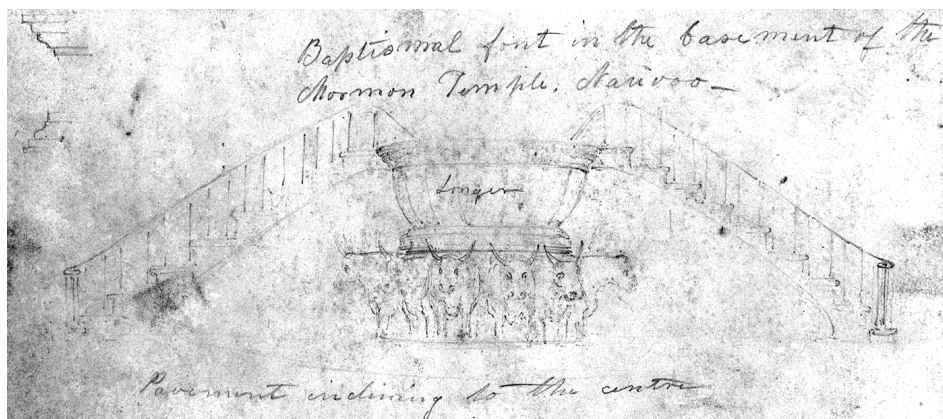 Baptismal font in the basement of the
Mormon Temple. Nauvoo –
Longer
Pavement inclining to the centre